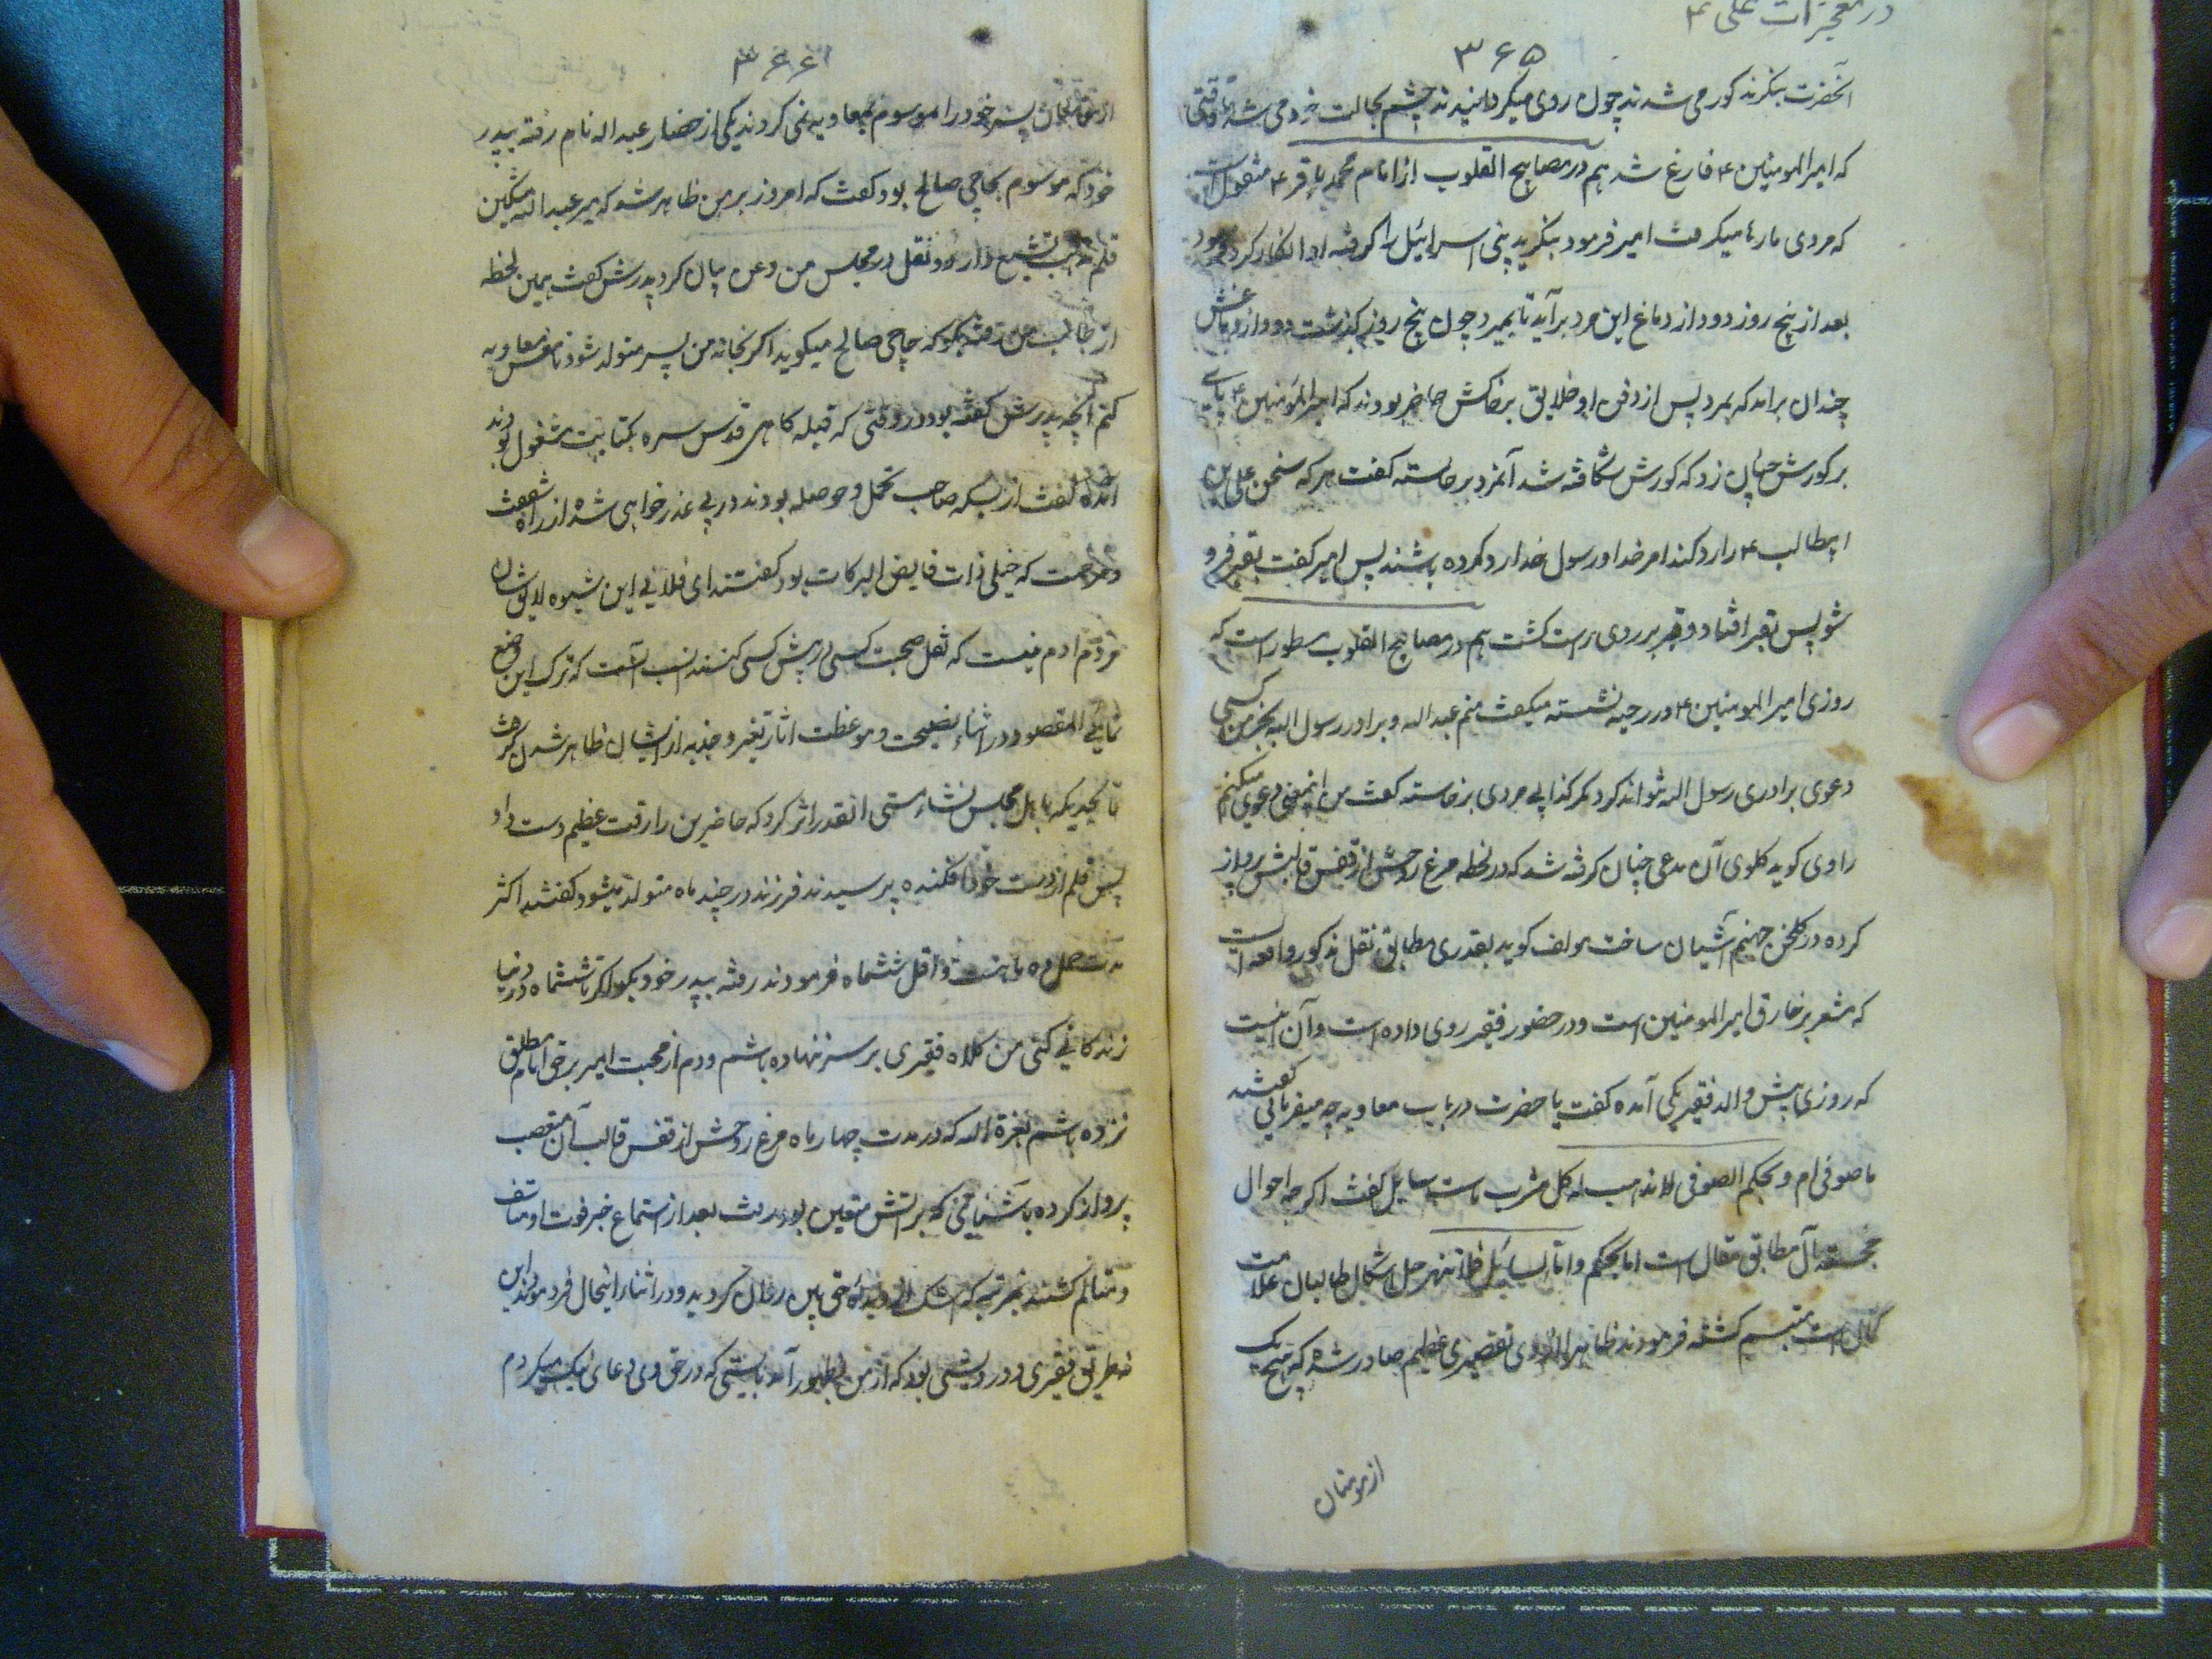 در معجزات علی ۴
۳۶۵
آنحضرت بنکرند کور می شدند چون روی میکردانیدند چشم بحالت خود می شد تا وقتی
که امیرالمومنین ۴ فارغ شد هم در مصابیح القلوب از امام محمد باقر ۴ منقول است
که مردی مار ها میکرفت امیر فرمود بنکرید بنی اسرائیل را کرفته او انکار کرد فرمود
بعد از پنج روز دود از دماغ این مرد برآید تا بمیرد چون پنج روز بکذشت دود از دماغش
چندان برامد که بمرد پس از دفن او خلایق بر خاکش حاضر بودند که امیرالمومنین ۴ پای
بر کورش چنان زد که کورش شکافته شد آنمرد برخاسته کفت هر که سخن علی بن
ابیطالب ۴ را رد کند امر خدا و رسول خدا رد کرده باشند پس امیر کفت بقبر فرو
شو پس بقبر افتاد و قبر بر روی راست کشت هم در مصابیح القلوب مسطور است که
روزی امیرالمومنین ۴ در رحبه نشسته میکفت منم عبد اله و برادر رسول اله بجز من کسی
دعوی برادری رسول اله نتواند کرد مکر کذابی مردی برخاسته کفت من اینمعنی دعوی میکنم
راوی کوید کلوی آن مدعی چنان کرفته شد که در لحظه مرغ روحش از قفس قالبش پرواز
کرده در کلخن جهنم آشیان ساخت مولف کوید بقدری مطابق نقل مذکور واقعه است
که مشعر بر خارق امیرالمومنین است و در حضور فقیر روی داده است و آن اینست
که روزی پیش والد فقیر یکی آمده کفت یا حضرت در باب معاویه چه میفرمائی کفتند
ما صوفی ام و بحکم الصوفی لا مذهب له کل مشرب ماست سایل کفت اکرچه احوال
خجسته مآل مطابق مقال است اما بحکم و اما السایل فلا تنهر حل اشکال طالبان علامت
کمال است متبسم کشته فرمودند ظاهرا از وی تقصیری عظیم صادر شده که هیچ یک
از مومنان
۳۶۶
از متقابلان پسر خود را موسوم بمعاویه نمی کردند یکی از حضار عبد اله نام رفته بپدر
خود که موسوم بحاجی صالح بود کفت که امروز بر من ظاهر شد که میر عبد اله مشکین
قلم مذهب تشیع دارد و نقل در مجلس من و عن بیان کرد پدرش کفت همین لحظه
از جانب من رفته بکو که حاجی صالح میکوید اکر بخانه من پسر متولد شود نامش معاویه
کنم آنچه پدرش کفته بود در وقتی که قبله کاهی قدس سره بکتابت مشغول بودند
آمده کفت از بسکه صاحب تحمل و حوصله بودند در پی عذر خواهی شده از راه شفقت
و مرحمت که خیلی ذات فایض البرکات بود کفتند ای فلانی این شیوه لایق شان
مردم ادم نیست که نقل صحبت کسی در پیش کسی کنند انسب آنست که ترک این وضع
نمائی المقصود در اثناء نصیحت و موعظت اثار تغیر و جذبه از ایشان ظاهر شدن کرفت
تا بحدیکه با اهل مجلس نشاء مستی انقدر اثر کرد که حاضرین را رقت عظیم دست داد
پس قلم از دست خود افکنده پرسیدند فرزند در چند ماه متولد میشود کفتند اکثر
مدت حمل ده ماهست و اقل ششماه فرمودند رفته بپدر خود بکو اکر تا ششماه در دنیا
زندکانی کنی من کلاه فقیری بر سر ننهاده باشم و دم از محبت امیر بر حق امام مطلق
نزده باشم بعزة اله که در مدت چهار ماه مرغ روحش از قفس قالب آن متعصب
پرواز کرده بآشیانی که براتش متعین بود رفت بعد از استماع خبر فوت او متاسف
و متالم کشتند بمرتبه که اشک از دیده حق بین روان کردید و در اثناء اینحال فرمودند این
نه طریق فقیری و درویشی بود که از من بظهور آمد بایستی که در حق وی دعای نیک میکردم